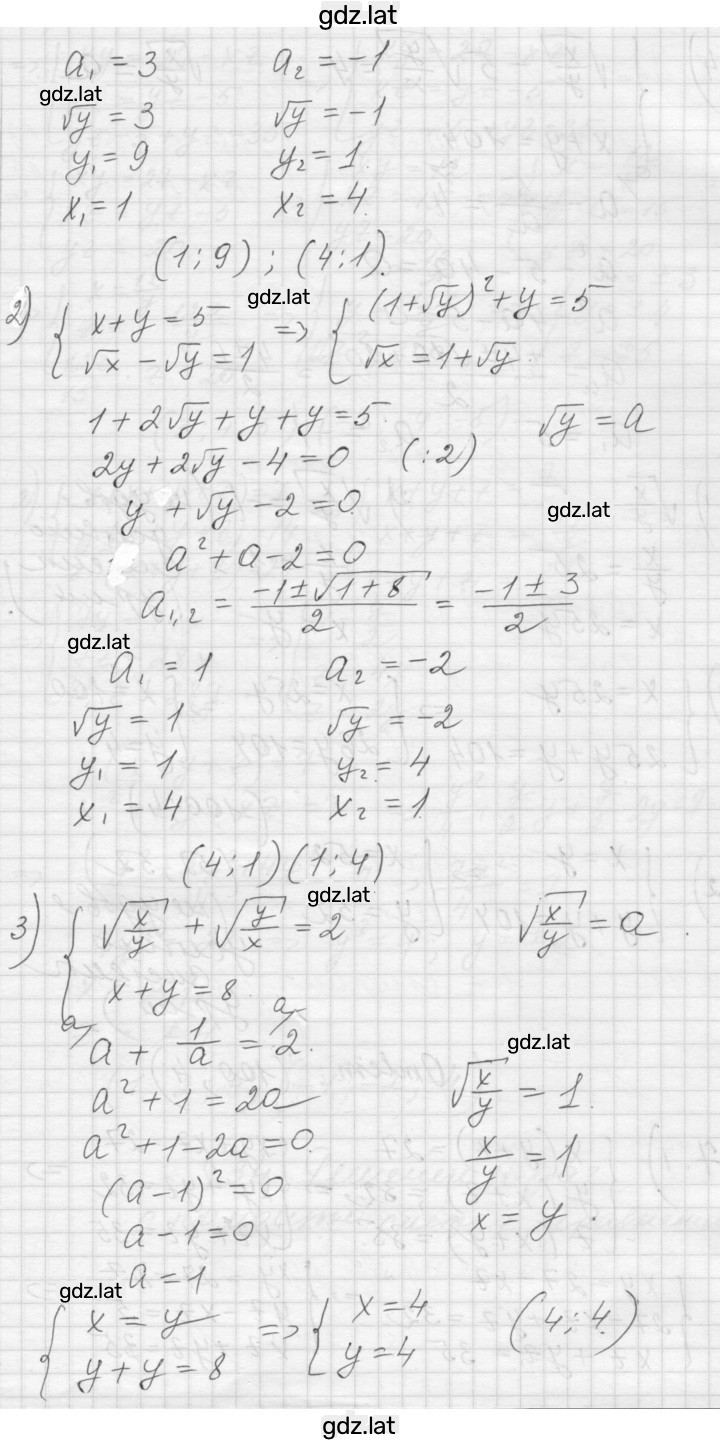 gdz.lat
a₁ = 3 a₂ = −1
gdz.lat
√y = 3 √y = −1
y₁ = 9 y₂ = 1.
x₁ = 1 x₂ = 4.
(1; 9) ; (4; 1).
gdz.lat
2) { x + y = 5 => { (1+√y)² + y = 5
√x − √y = 1 √x = 1+√y.
1 + 2√y + y + y = 5. √y = a
2y + 2√y − 4 = 0 (:2)
y + √y − 2 = 0.
gdz.lat
a² + a − 2 = 0
a₁,₂ = (−1 ± √(1+8))/2 = (−1 ± 3)/2
gdz.lat
a₁ = 1 a₂ = −2
√y = 1 √y = −2
y₁ = 1 y₂ = 4
x₁ = 4 x₂ = 1.
(4; 1) (1; 4)
gdz.lat
3) { √(x/y) + √(y/x) = 2 √(x/y) = a.
x + y = 8.
a/ a + 1/a = a/ 2.
gdz.lat
a² + 1 = 2a √(x/y) = 1.
a² + 1 − 2a = 0. x/y = 1
(a − 1)² = 0 x = y.
a − 1 = 0
a = 1
gdz.lat
{ x = y => { x = 4 (4; 4.)
y + y = 8 y = 4
gdz.lat